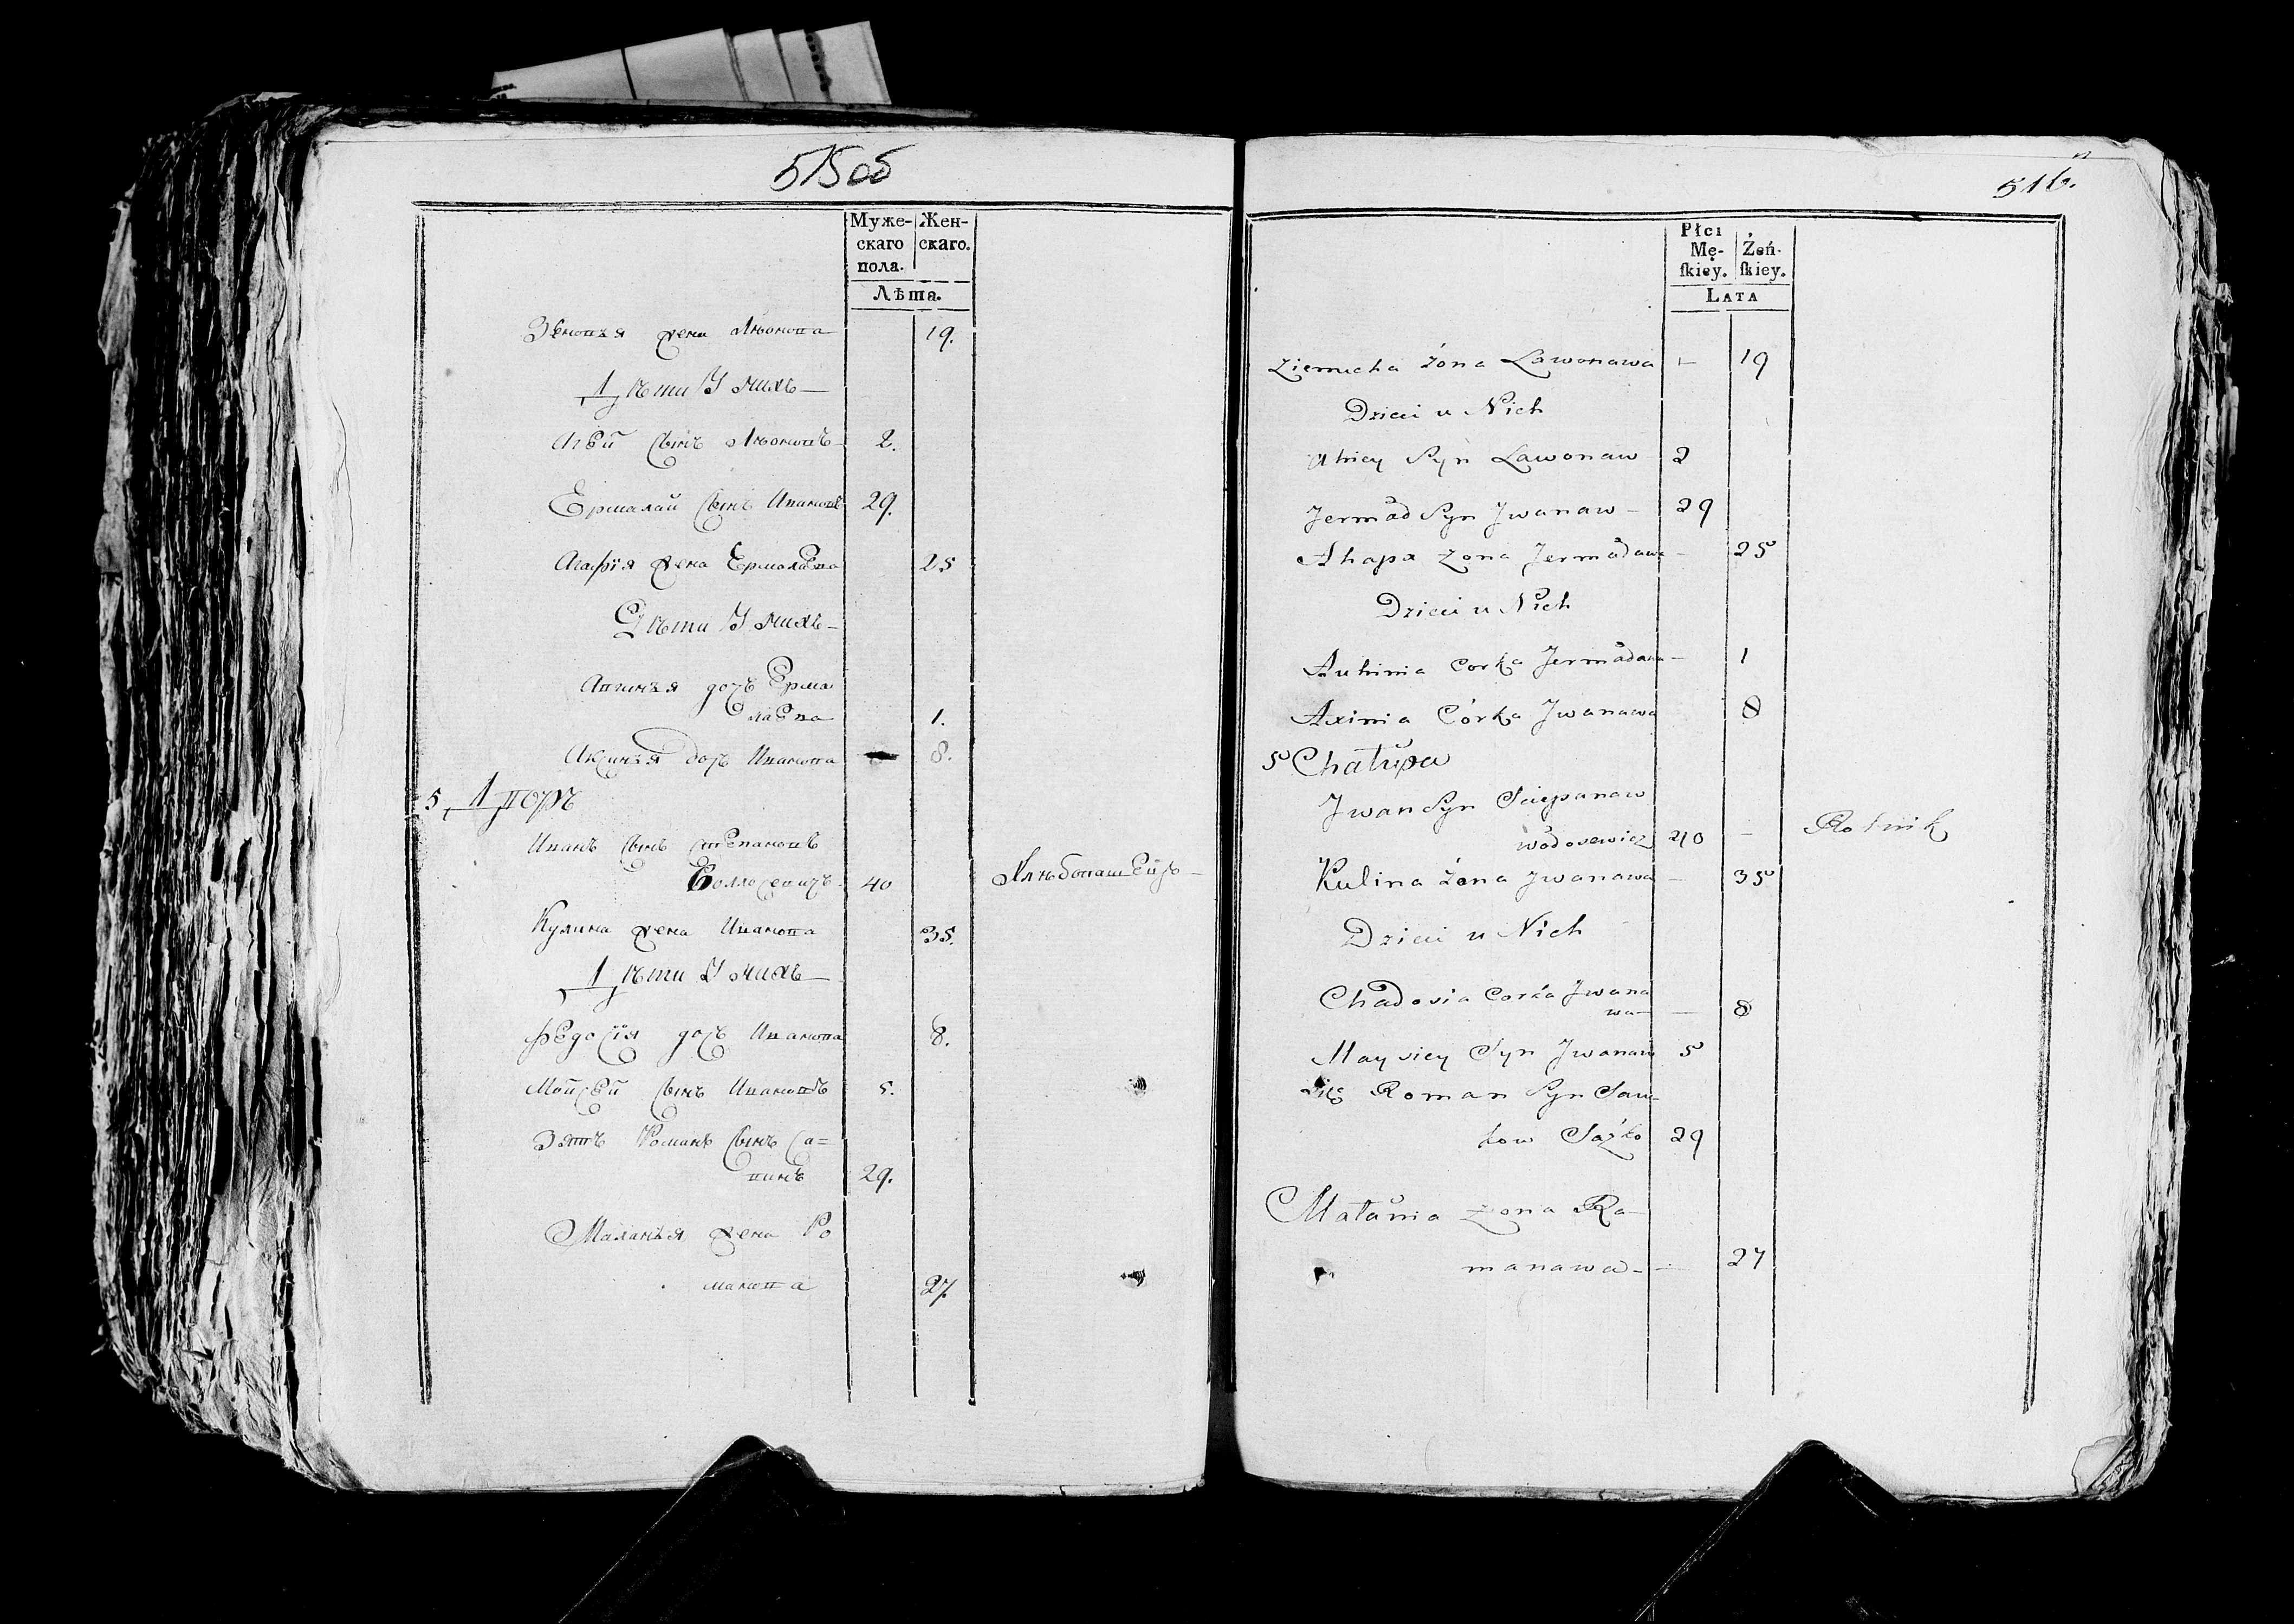 515 об
Муже-
скаго
пола.
Жен-
скаго.
Лѣта.
Зѣновья жена Лѣонова 19.
Дѣти У нихъ
Агѣй сынъ Лѣоновъ 2.
Ермалай сынъ Ивановъ 29.
Агафія жена Ермолаева 25
Дѣти У нихъ
Авгинья дочь Ерма
лаева 1.
Аксинья дочь Иванова 8.
5 Дворъ
Иванъ сынъ степановъ
40 Хлѣбопашецъ
Кулина жена Иванова 35.
Дѣти У нихъ
Федосія дочь Иванова 8.
Мойсей сынъ Ивановъ 5.
Зять Романъ сынъ Са=
винъ 29.
Маланья жена Ро
манова 27.
516.
Płci
Mę-
ſkiey.
Żeń-
ſkiey.
LATA
Ziernucha żona Lawonawa – 19
Dzieci u Nich
Ahiey Syn Lawonaw 2
Syn Jwanaw – 29
Ahapa zona 25
Dzieci u Nich
Auhinia Corka 1
Axinia Córka Jwanawa 8
5 Chałupa
Jwan Syn Sciepanaw
40 – Rolnik
Kulina żona Jwanawa – 35
Dzieci u Nich
Chadosia Corka Jwana
wa – 8
Maysiey Syn Jwanaw 5
Zięć Roman Syn Saw-
kow 29
Małania zona Ra-
manawa – 27